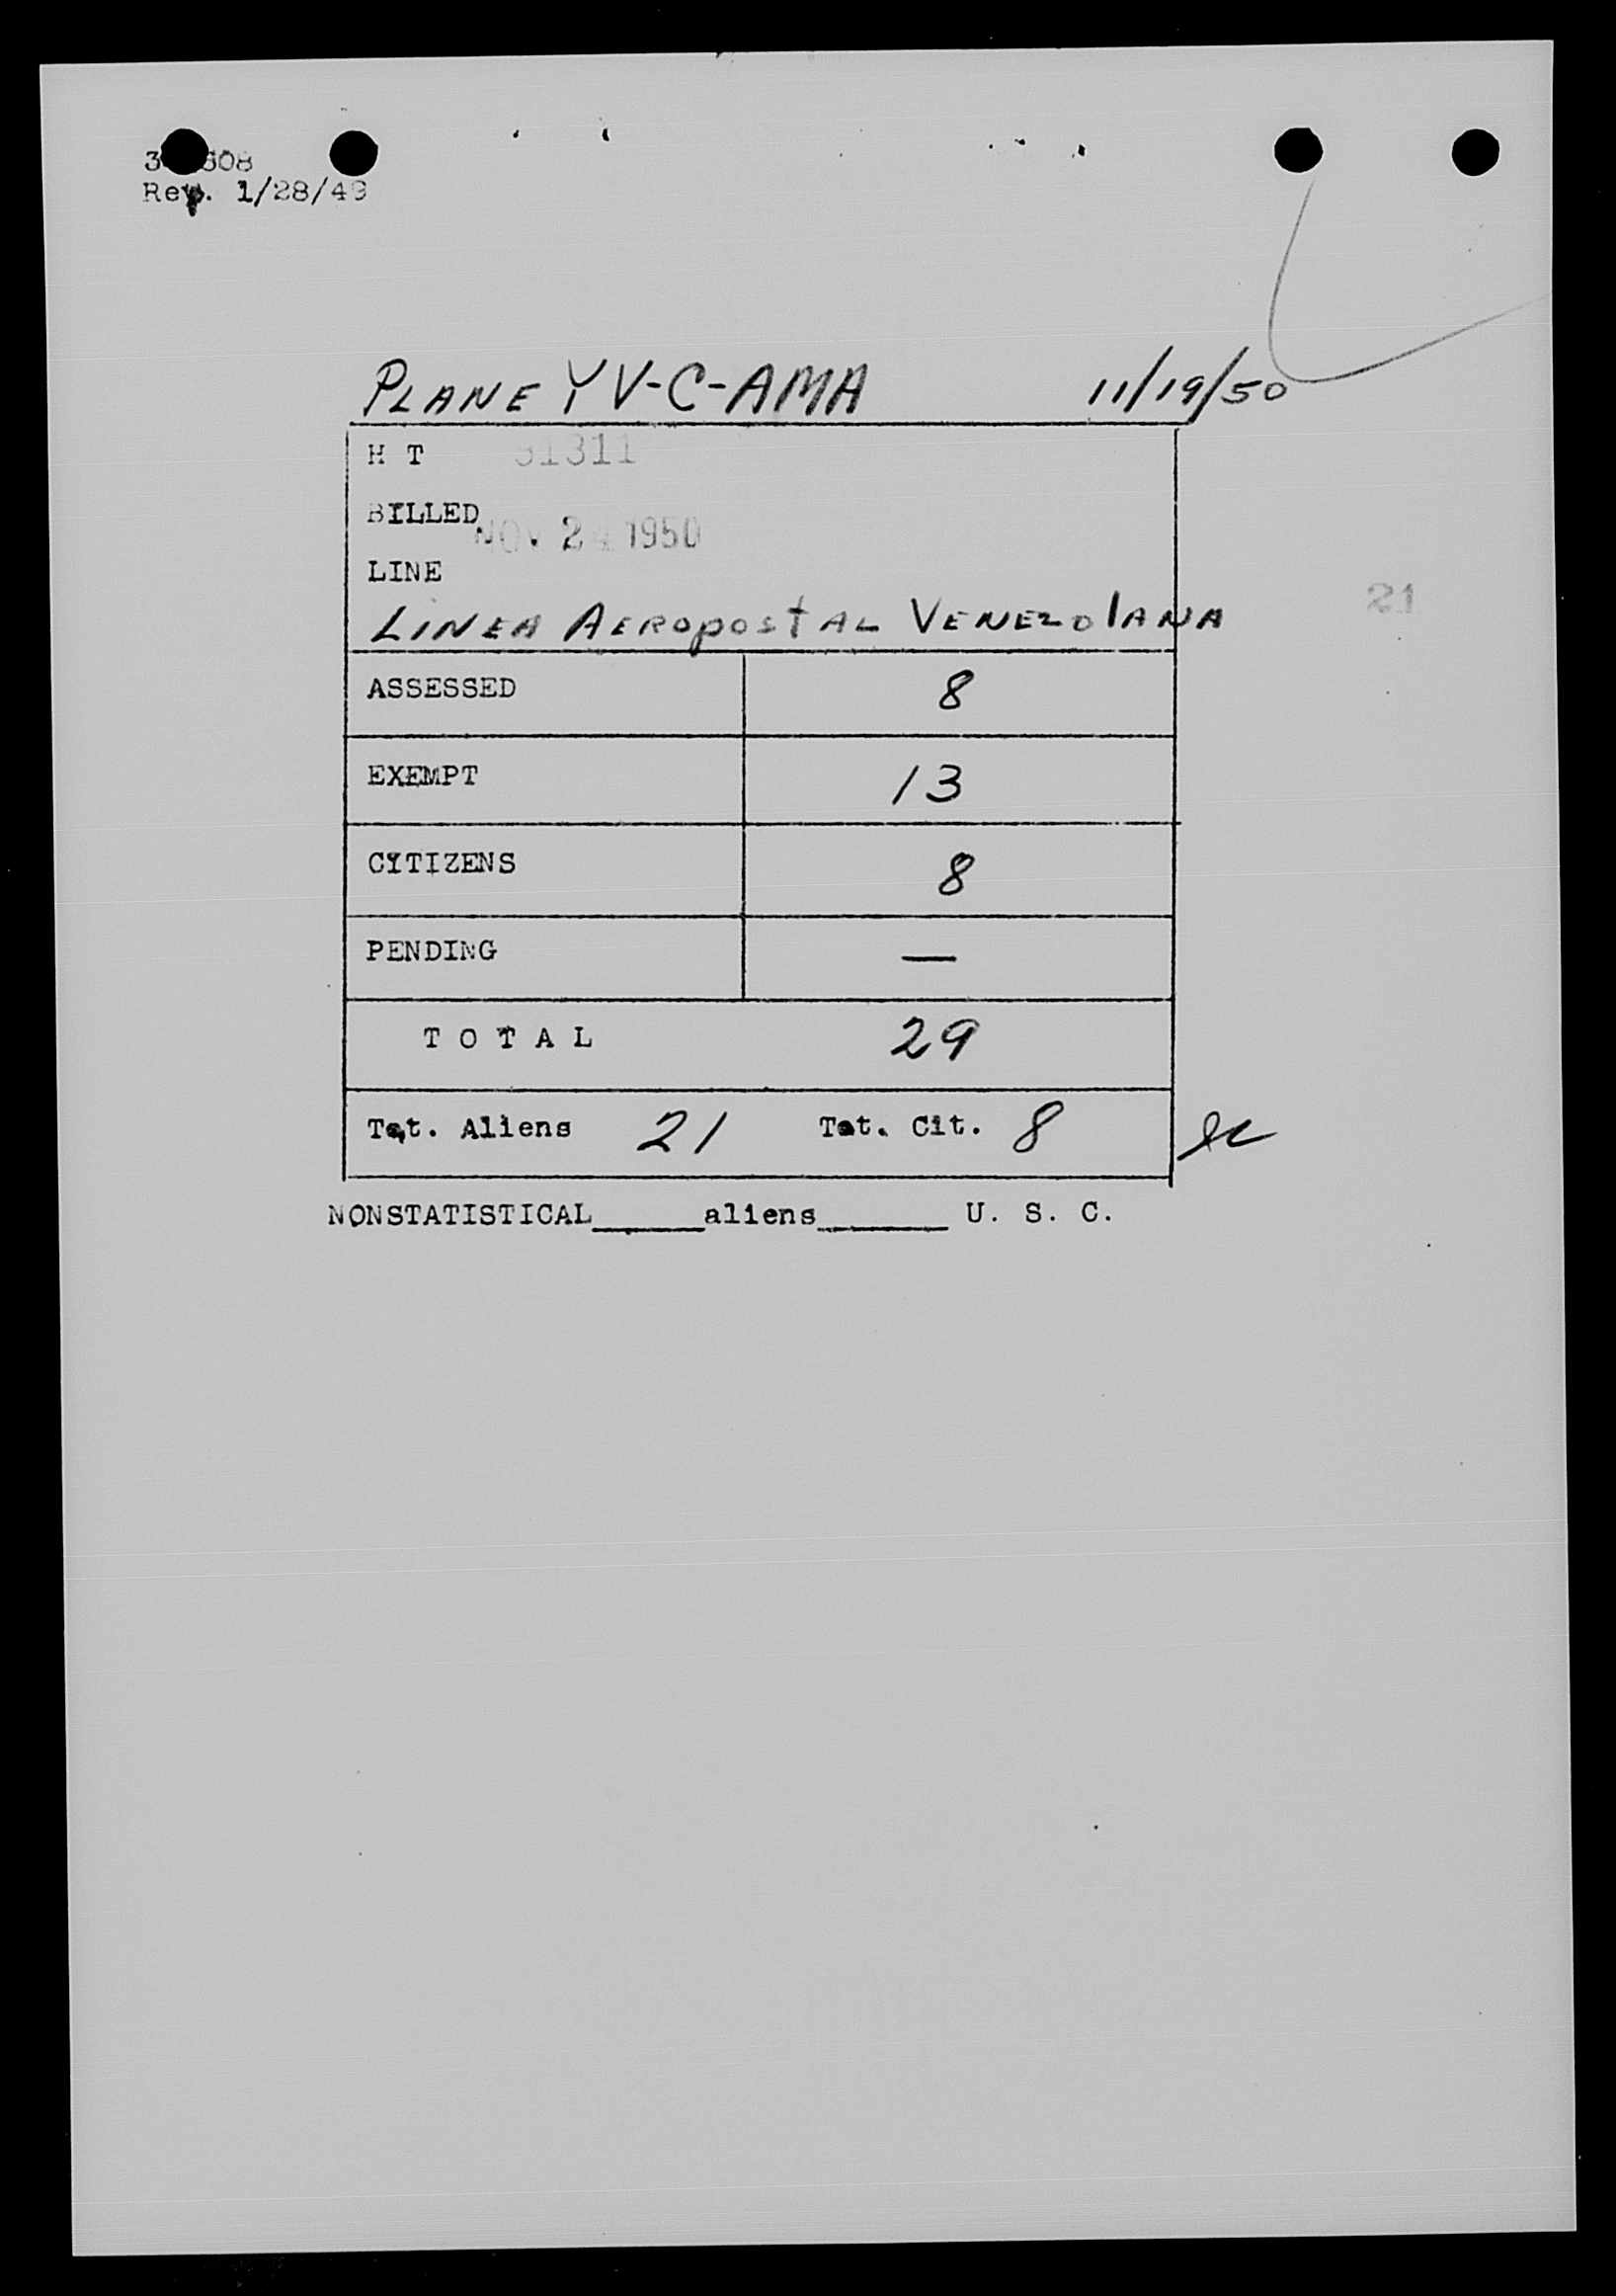 Rev. 1/28/49
PLANE YV-C-AMA 11/19/50
H T 31311
BILLED NOV 24 1950
LINE
LINEA AEROPOSTAL VENEZOLANA
21
ASSESSED 8
EXEMPT 13
CITIZENS 8
PENDING —
T O T A L 29
Tot. Aliens 21 Tot. Cit. 8
NONSTATISTICAL______aliens_______ U. S. C.